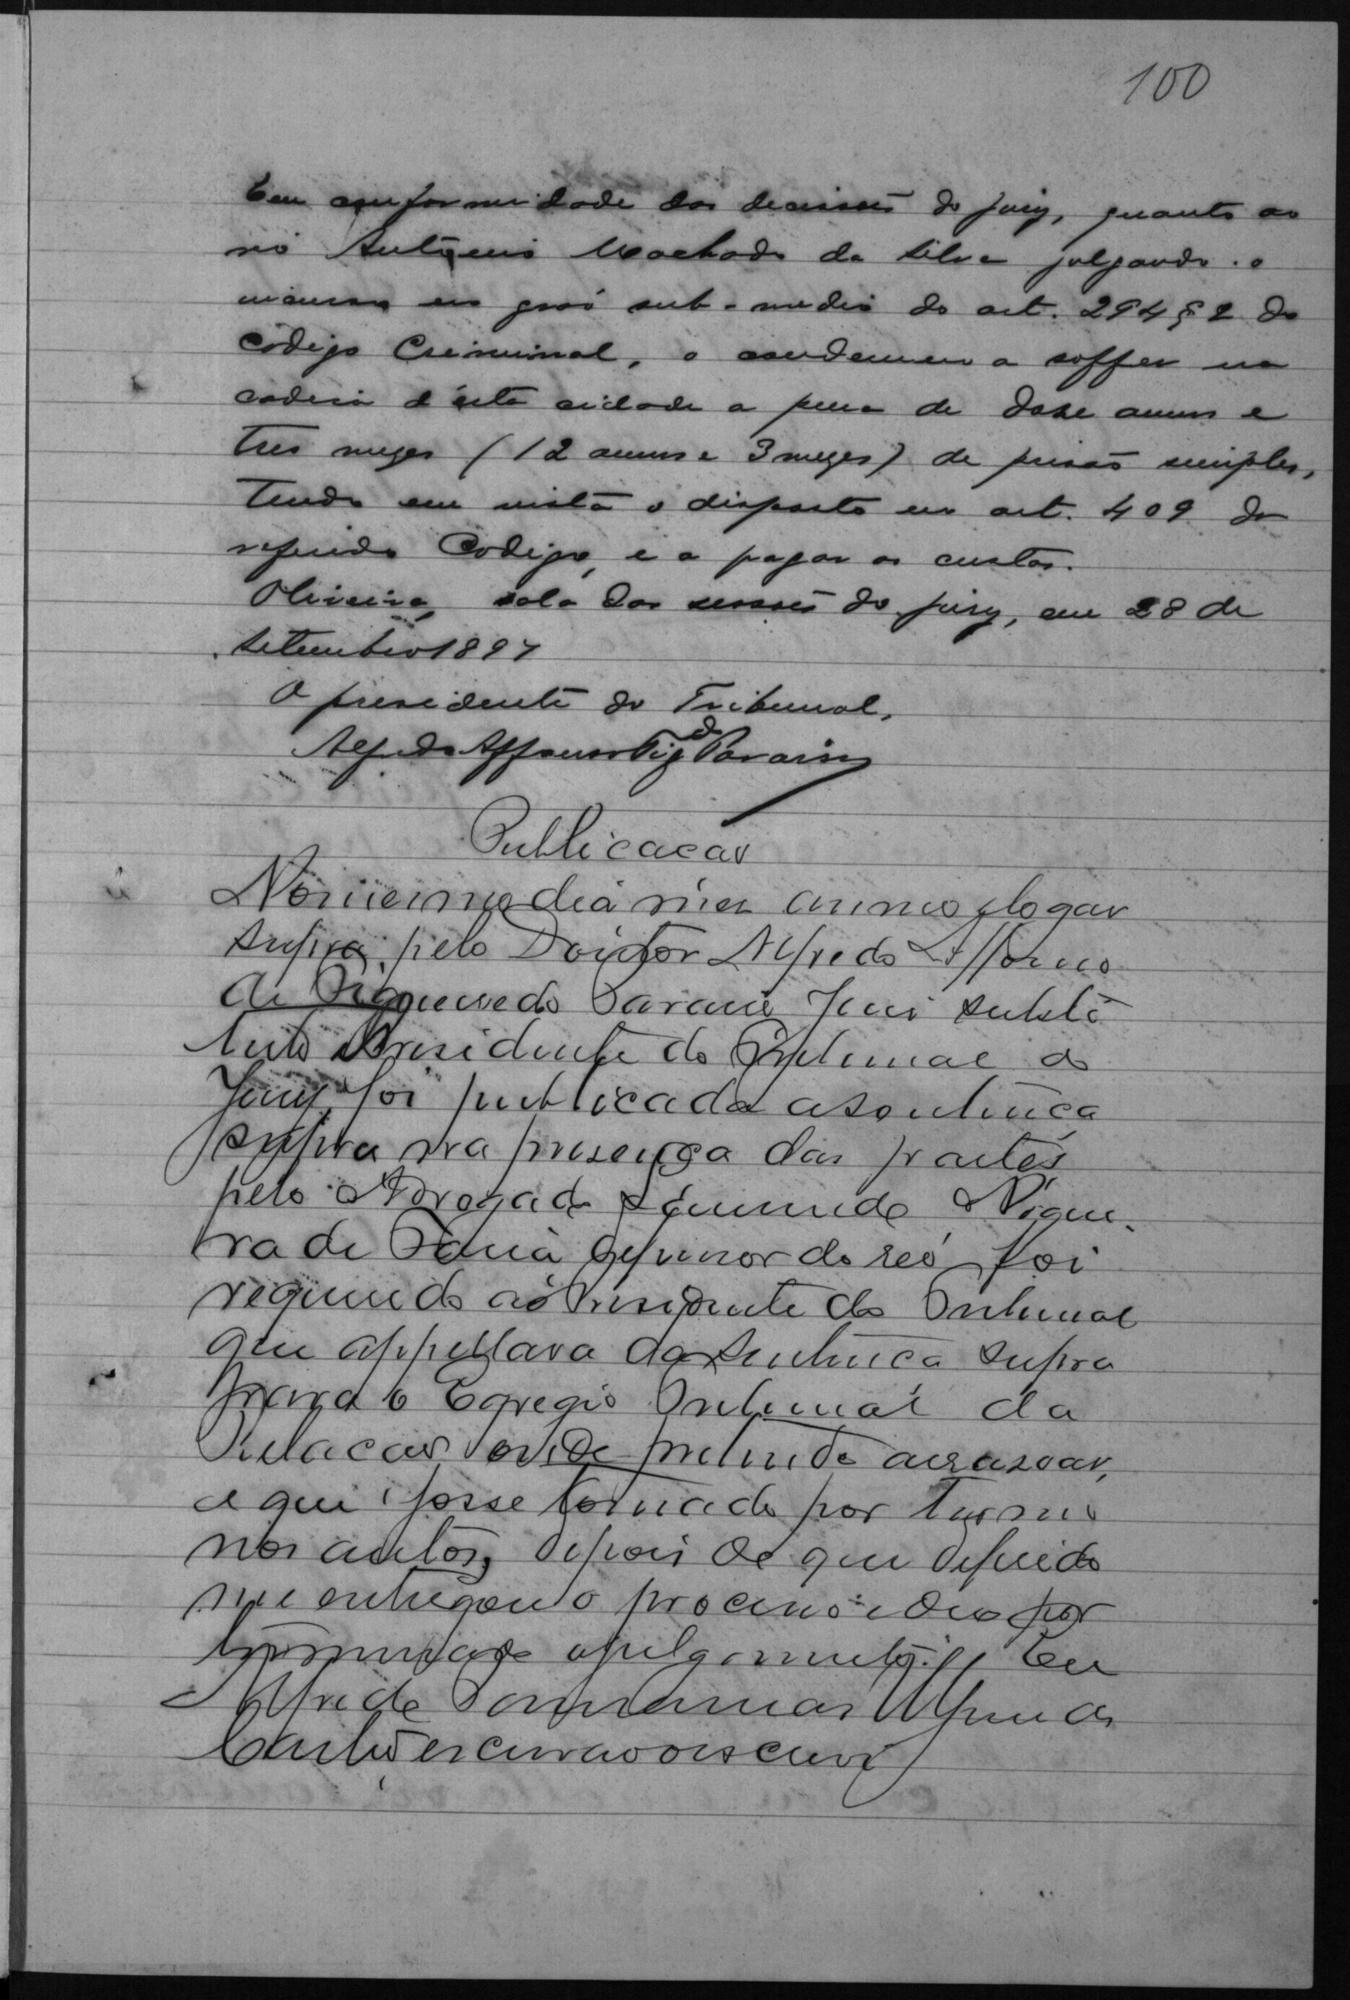 100
Em conformidade das decisões do jury, quanto ao
réo Antônio Machado da Silva julgando-o
incurso no gráo sub-medio do art. 294 § 2 do
Codigo Criminal, o condemno a soffer na
cadeia d'esta cidade a pena de doze annos e
tres mezes (12 annos e 3 mezes) de prisão simples,
tendo em vista o disposto no art. 409 do
referido Codigo, e a pagar as custas.
Oliveira, sala das sessões do jury, em 28 de
setembro 1897
O presidente do Tribunal,
Alfredo Affonso Fig.do Paraiso
Publicacao
No mesmo dia mez anno e logar
supra, pelo Doutor Alfredo Affonso
de Figueiredo Paraiso Juis substi
tuto Presidente do Tribunal do
Jury, foi publicada a sentença
supra na presença das partes
pelo Advogado Nogue-
ra de Faria defensor do reo foi
requerido ao Presidente do Tribunal
que appellava da sentença supra
para o Egregio Tribunal da
Relacao, onde pretende arrasoar,
e que fosse tomado por termo
nos autos, depois de que deferido
me entregou o processo e deo por
terminado o julgamento. Eu
Alfredo
escrivao o escrevi